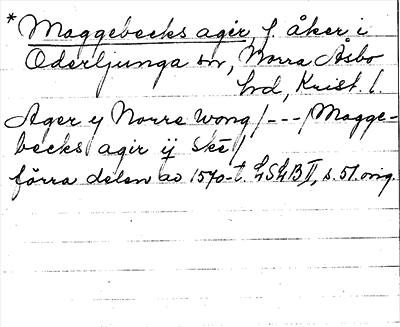 * Maggebecks agir, f. åker i
Oderljunga sn, Norra Åsbo
hd, Krist. l.
Ager y Norre wong /---/ Magge-
becks agir ÿ skẽ /
förra delen av 1570-t. LSLB II, s. 51. orig.